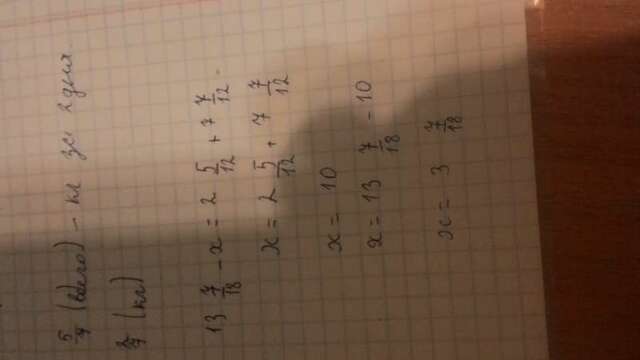 (всего) - кг за 2 дня
(кг)
13 7/18 - x = 2 5/12 + 7 7/12
x = 2 5/12 + 7 7/12
x = 10
x = 13 7/18 - 10
x = 3 7/18